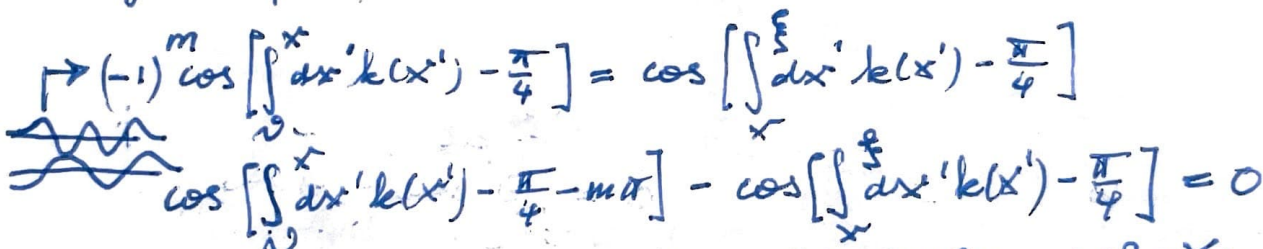 → (-1)^m cos[∫_ν^x dx' k(x') - π/4] = cos[∫_x^ξ dx' k(x') - π/4]
cos[∫_ν^x dx' k(x') - π/4 - mπ] - cos[∫_x^ξ dx' k(x') - π/4] = 0